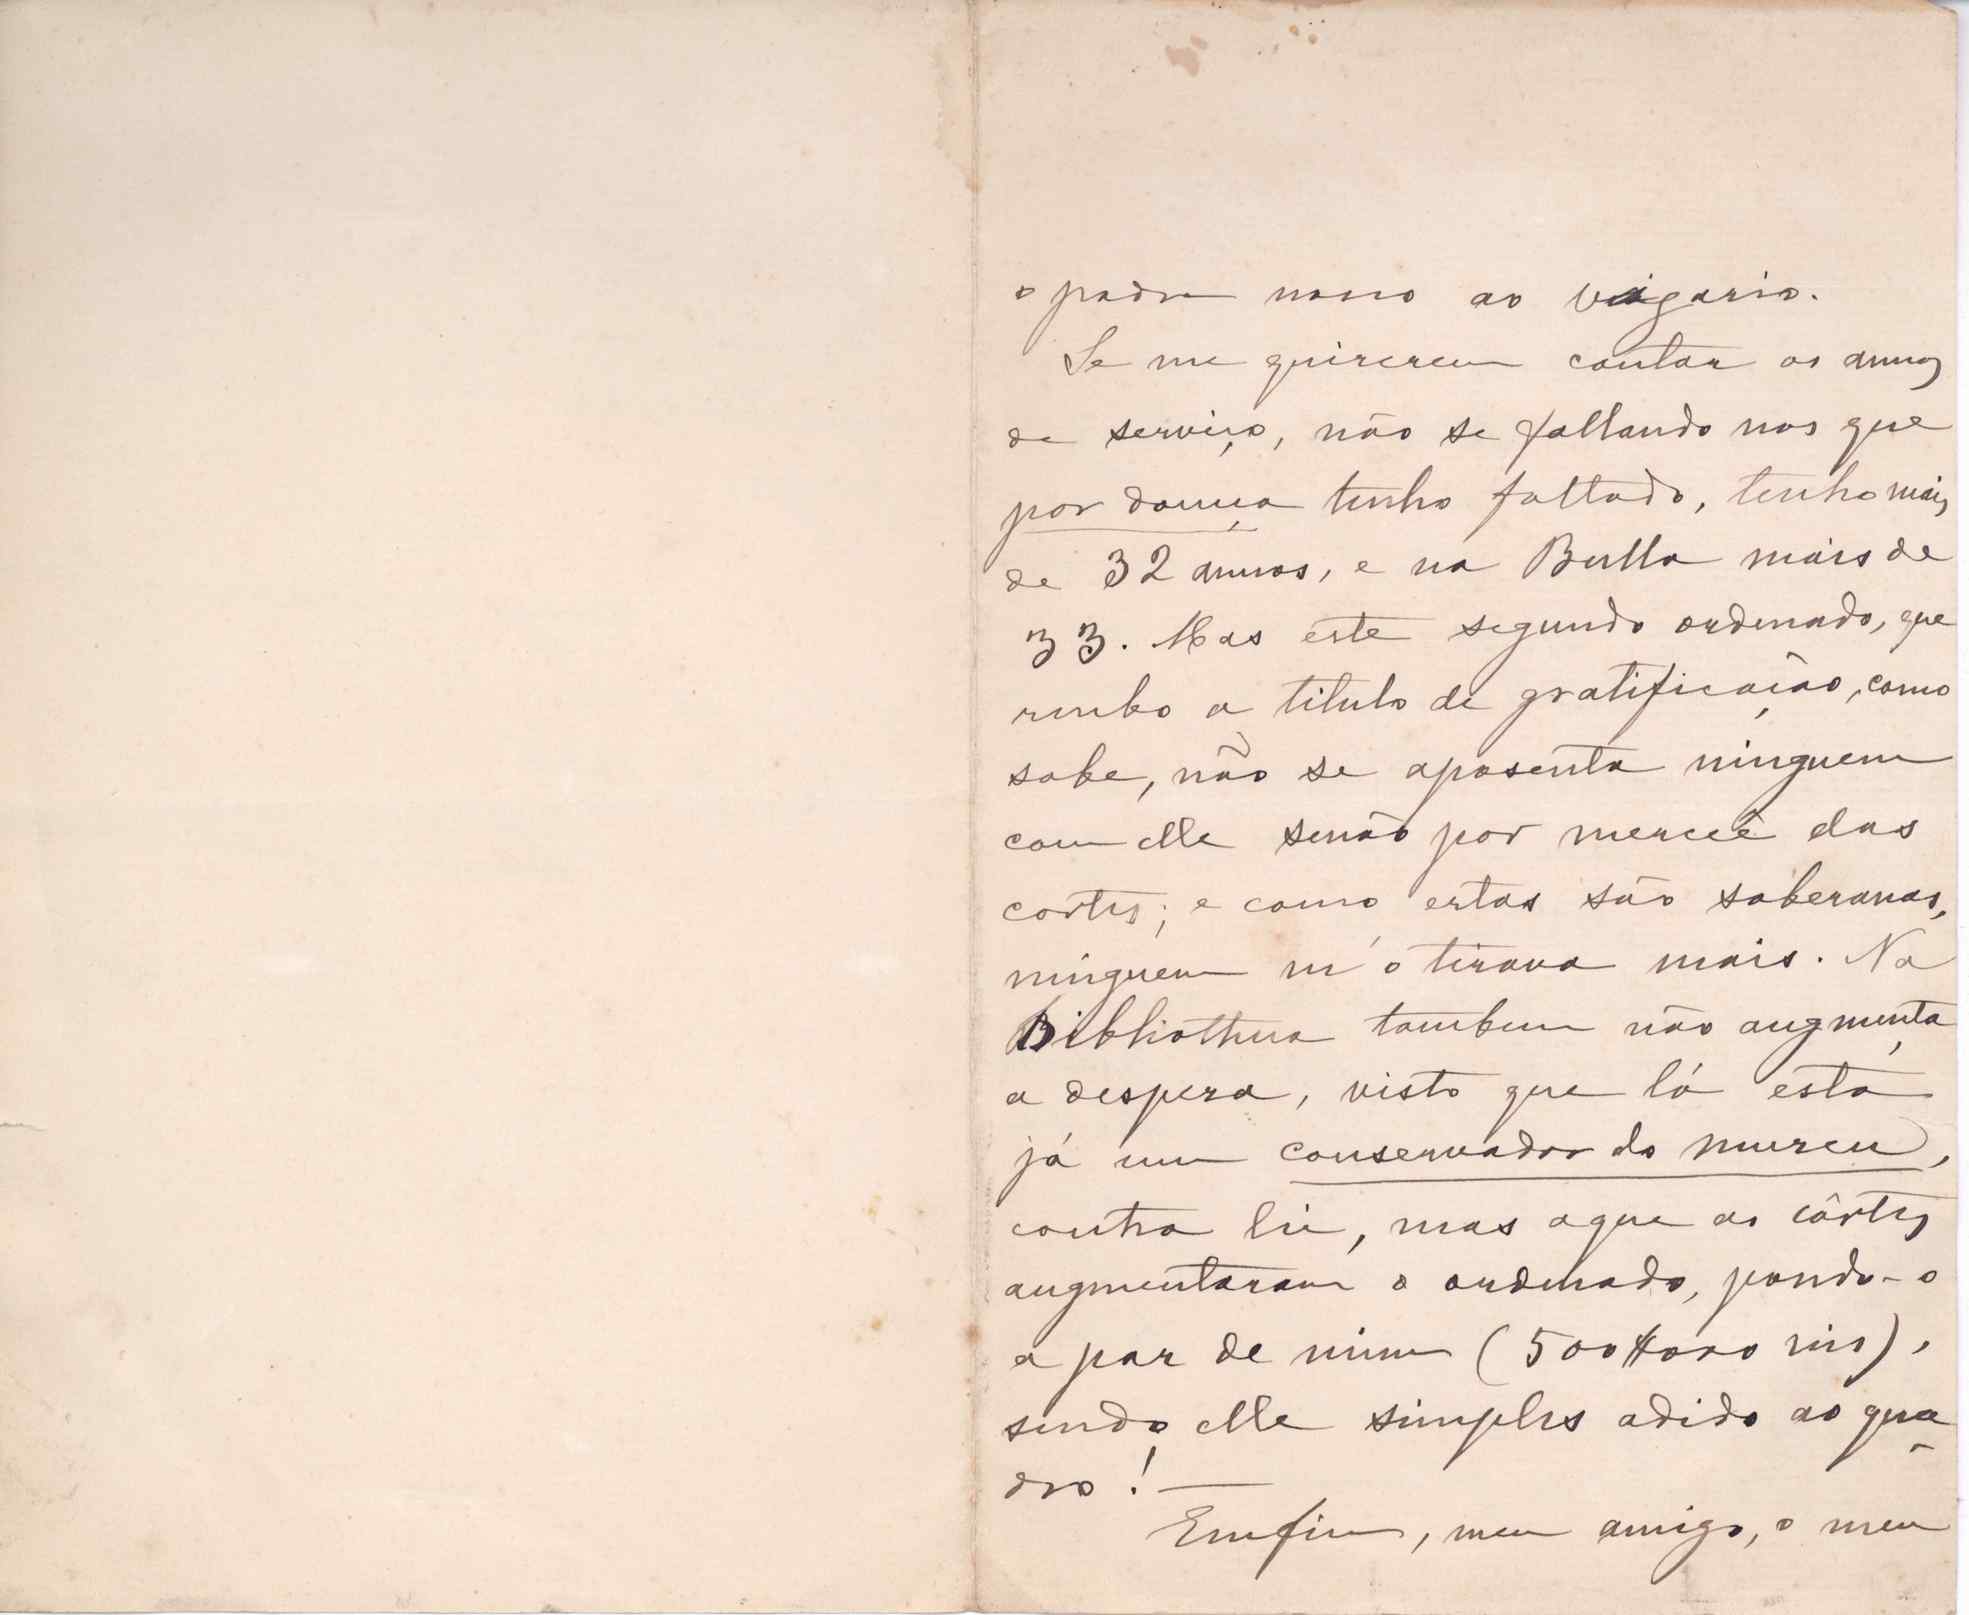 o padre nosso ao vigario.
Se me quizerem contar os annos
de serviço, não se fallando nos que
por doença tenho faltado, tenho mais
de 32 annos, e na Bulla mais de
33. Mas este segundo ordenado, que
recebo a titulo de gratificação, como
sabe, não se aposenta ninguem
com elle senão por mercê das
cortes; e como estas são soberanas,
ninguem m'o tirava mais. Na
Bibliotheca tambem não augmenta
a despeza, visto que lá está
já um conservador do museu,
contra lei, mas a que as côrtes
augmentaram o ordenado, pondo-o
a par de mim (500$000 reis),
sendo elle simples adido ao qua-
dro! —
Emfim, meu amigo, o meu